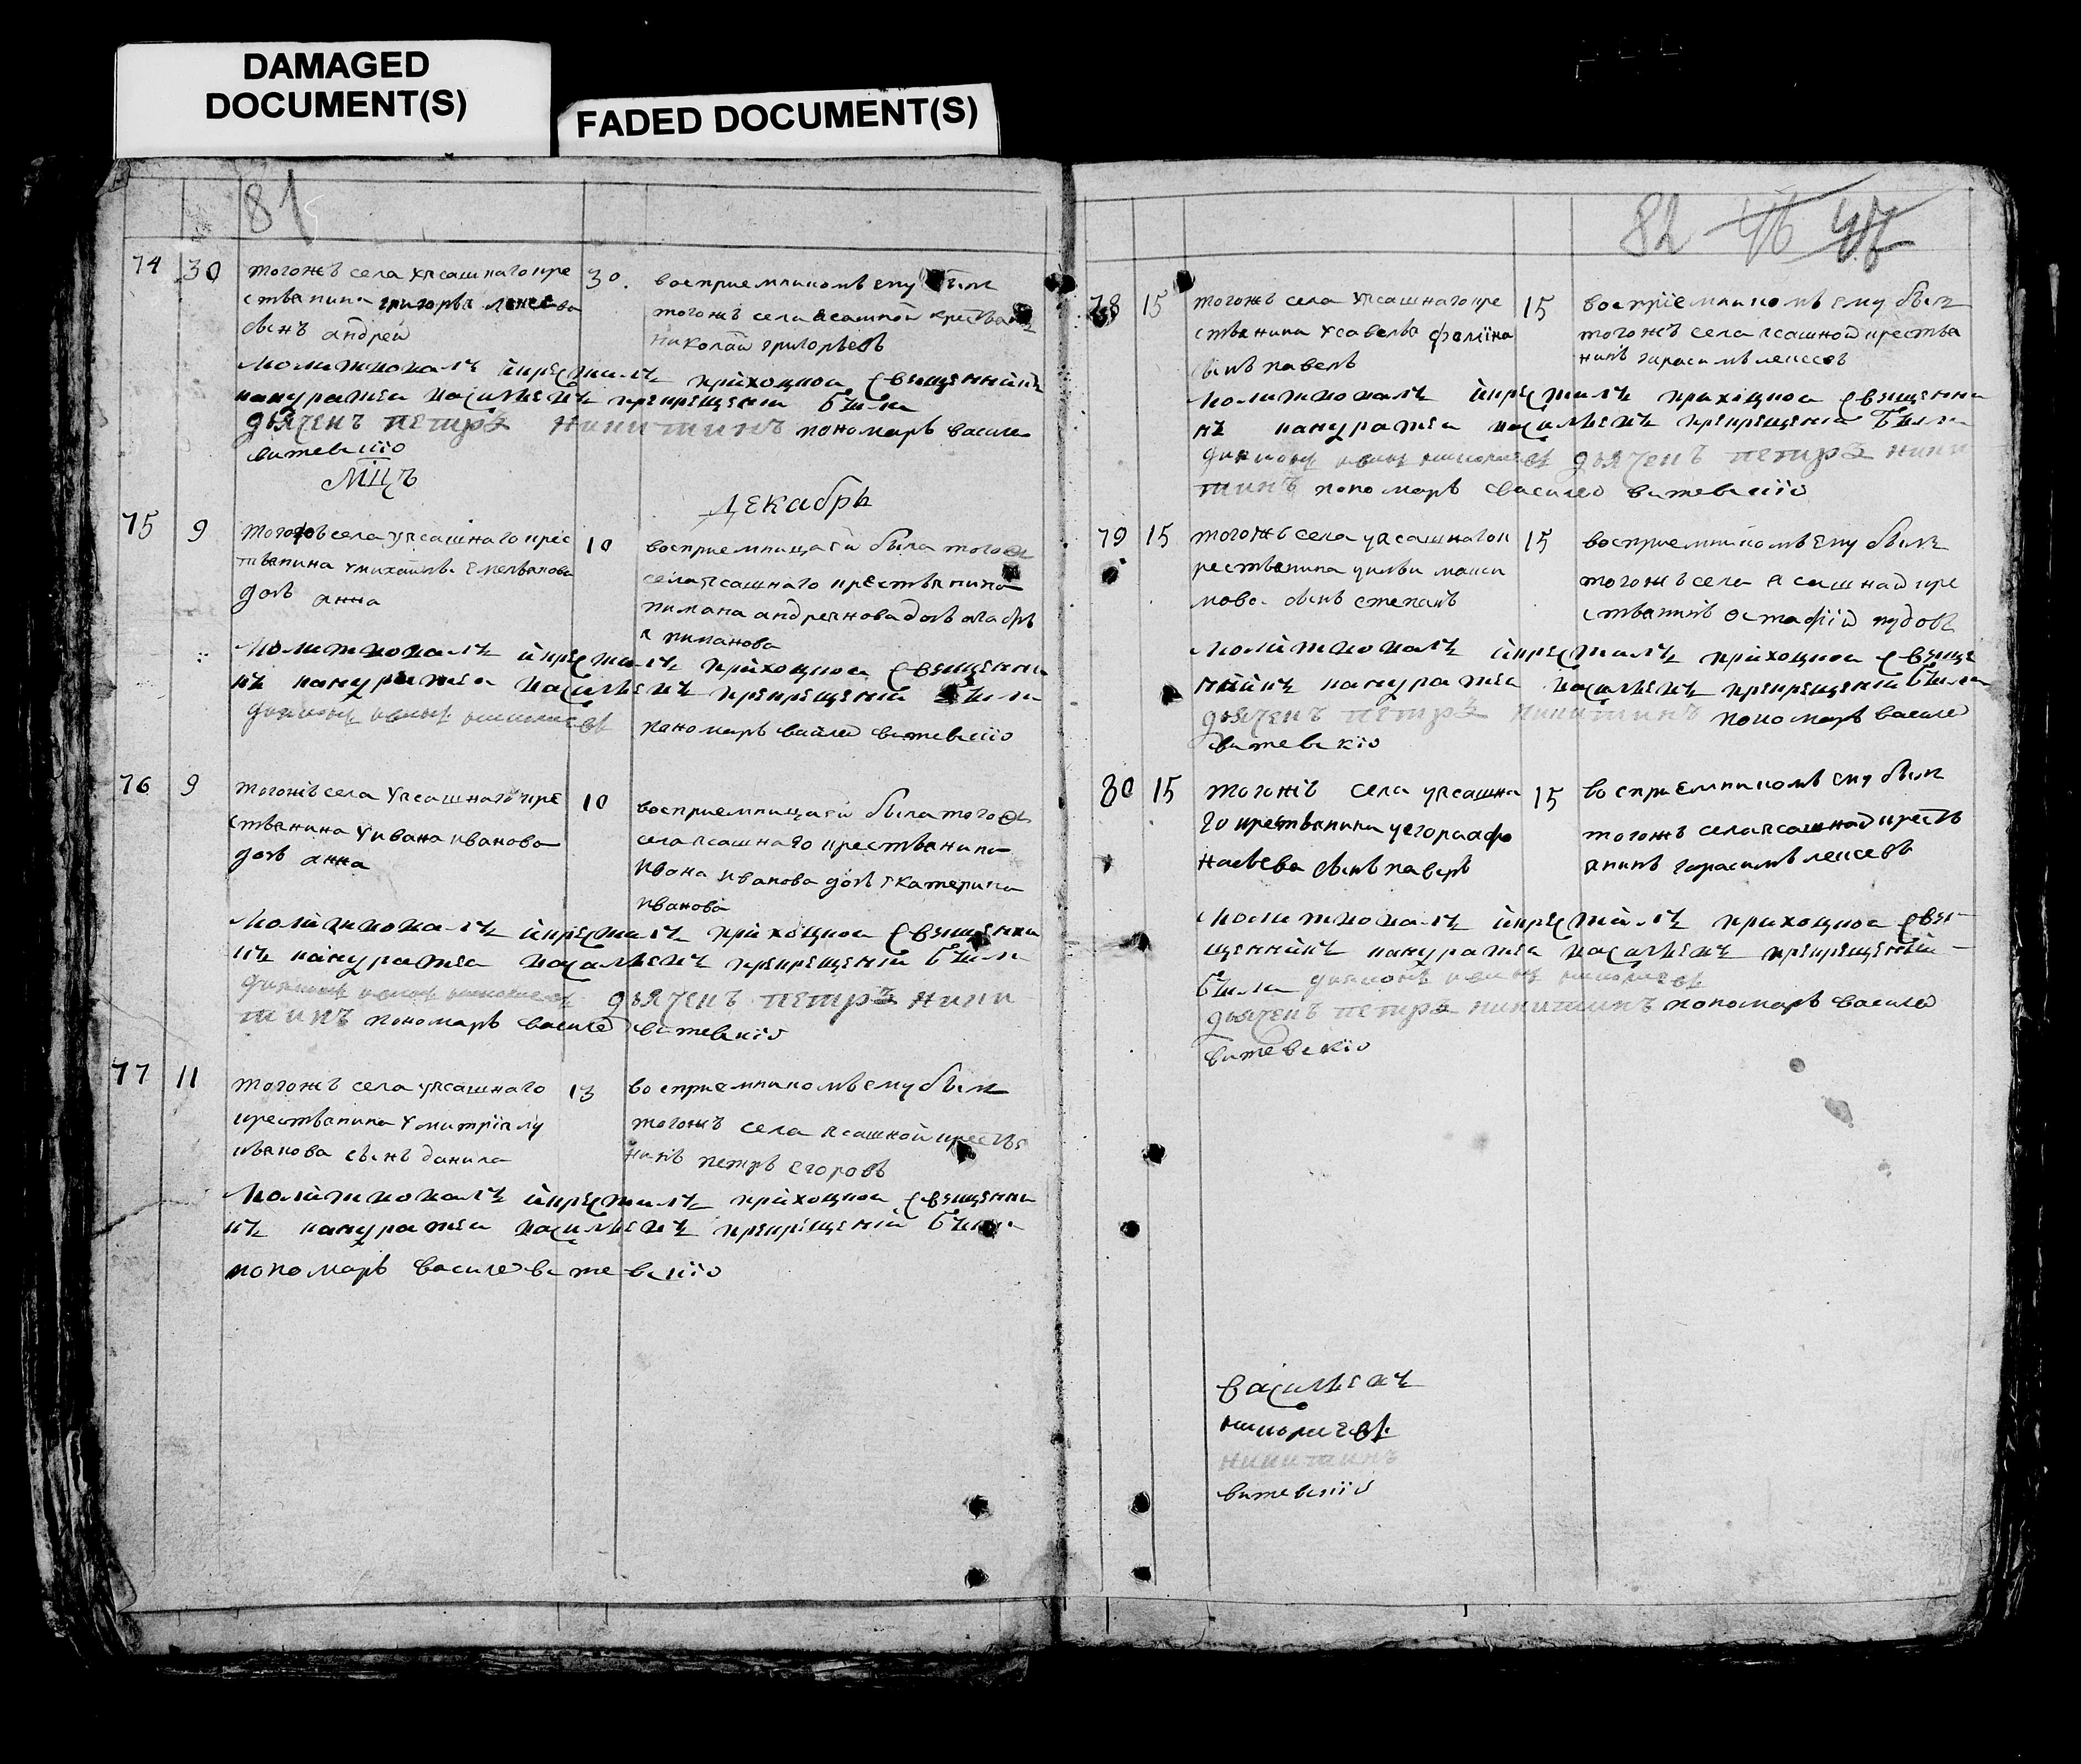 DAMAGED
DOCUMENT(S)
FADED DOCUMENT(S)
81
74 30 тогожъ села уясашнаго кре
стьянина григорья
сынъ андрей
30. восприемникомъ ему былъ
тогожъ села ясашной
николай григорьевъ
молитвовалъ икрестилъ приходцкои священникъ
кондратеи василевъ прикрещении были
дьячекъ петръ никитинъ пономарь василей
витевскио
МЦЪ
декабрь
75 9 тогожъ села уясашнаго крес
тьянина умихаила емельянова
дочь анна
10 восприемницаеи была тогожъ
села ясашнаго крестьянина
пимана андреянова дочь
пиманова
молитвовалъ икрестилъ приходцкои священни
къ кондратеи василевъ прикрещении были
пономарь василей витевскио
76 9 тогожъ села уясашнаго кре
стьянина уивана иванова
дочь анна
10 восприемницаеи была тогожъ
села ясашнаго крестьянина
ивана иванова дочь екатерина
иванова
молитвовалъ икрестилъ приходцкои священни
къ кондратеи василевъ прикрещении были
дьячекъ петръ ники
тинъ пономарь василей витевскио
77 11 тогожъ села уясашнаго
крестьянина умитрия лу
кьянова сынъ данила
13 восприемникомъ ему былъ
тогожъ села ясашной крестья
нинъ петръ егоровъ
молитвовалъ икрестилъ приходцкои священни
къ кондратеи василевъ прикрещении были
пономарь василей витевскио
82 46 47
78 15 тогожъ села уясашнаго кре
стьянина усавелья
сынъ павелъ
15 восприемникомъ ему былъ
тогожъ села ясашной крестья
нинъ гарасимъ
молитвовалъ икрестилъ приходцкои священни
къ кондратеи василевъ прикрещении были
дьячекъ петръ ники
тинъ пономарь василей витевскио
79 15 тогожъ села уясашнагок
рестьянина уильи макси
мова сынъ степанъ
15 восприемникомъ ему былъ
тогожъ села ясашнай кре
стьянинъ остафий
молитвовалъ икрестилъ приходцкои свяще
нникъ кондратеи василевъ прикрещении были
дьячекъ петръ никитинъ пономарь василей
витевскио
80 15 тогожъ села уясашна
го крестьянина уегора афо
насьева сынъ
15 восприемникомъ ему былъ
тогожъ села ясашнай кресть
янинъ гарасимъ
молитвовалъ икрестилъ приходцкои свя
щенникъ кондратеи василевъ прикрещении
были
дьячекъ петръ никитинъ пономарь василей
витевскио
василевъ
никитинъ
витевскио